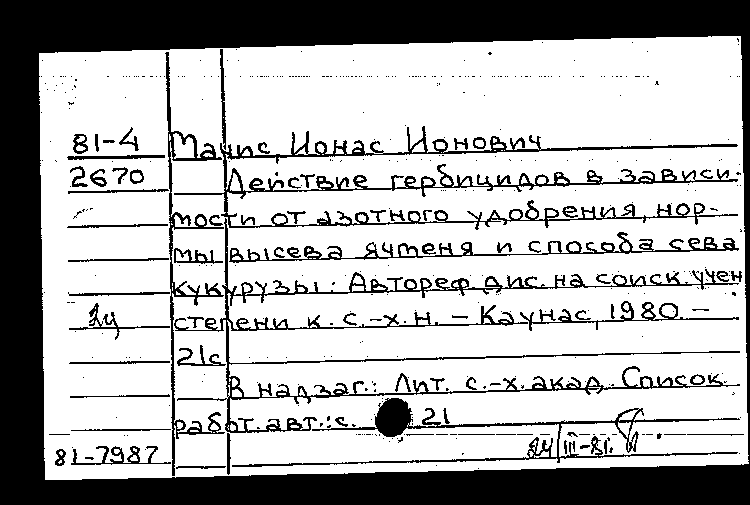 81-4 Мачис, Ионас Ионович
2670 Действие гербицидов в зависи-
мости от азотного удобрения, нор-
мы высева ячменя и способа сева
кукурузы: Автореф. дис. на соиск. учен
степени к. с.-х. н. – Каунас, 1980. –
21с
В надзаг.: Лит. с.-х. акад. Список
работ. авт.: с. 21
81-7987 24/III-81.